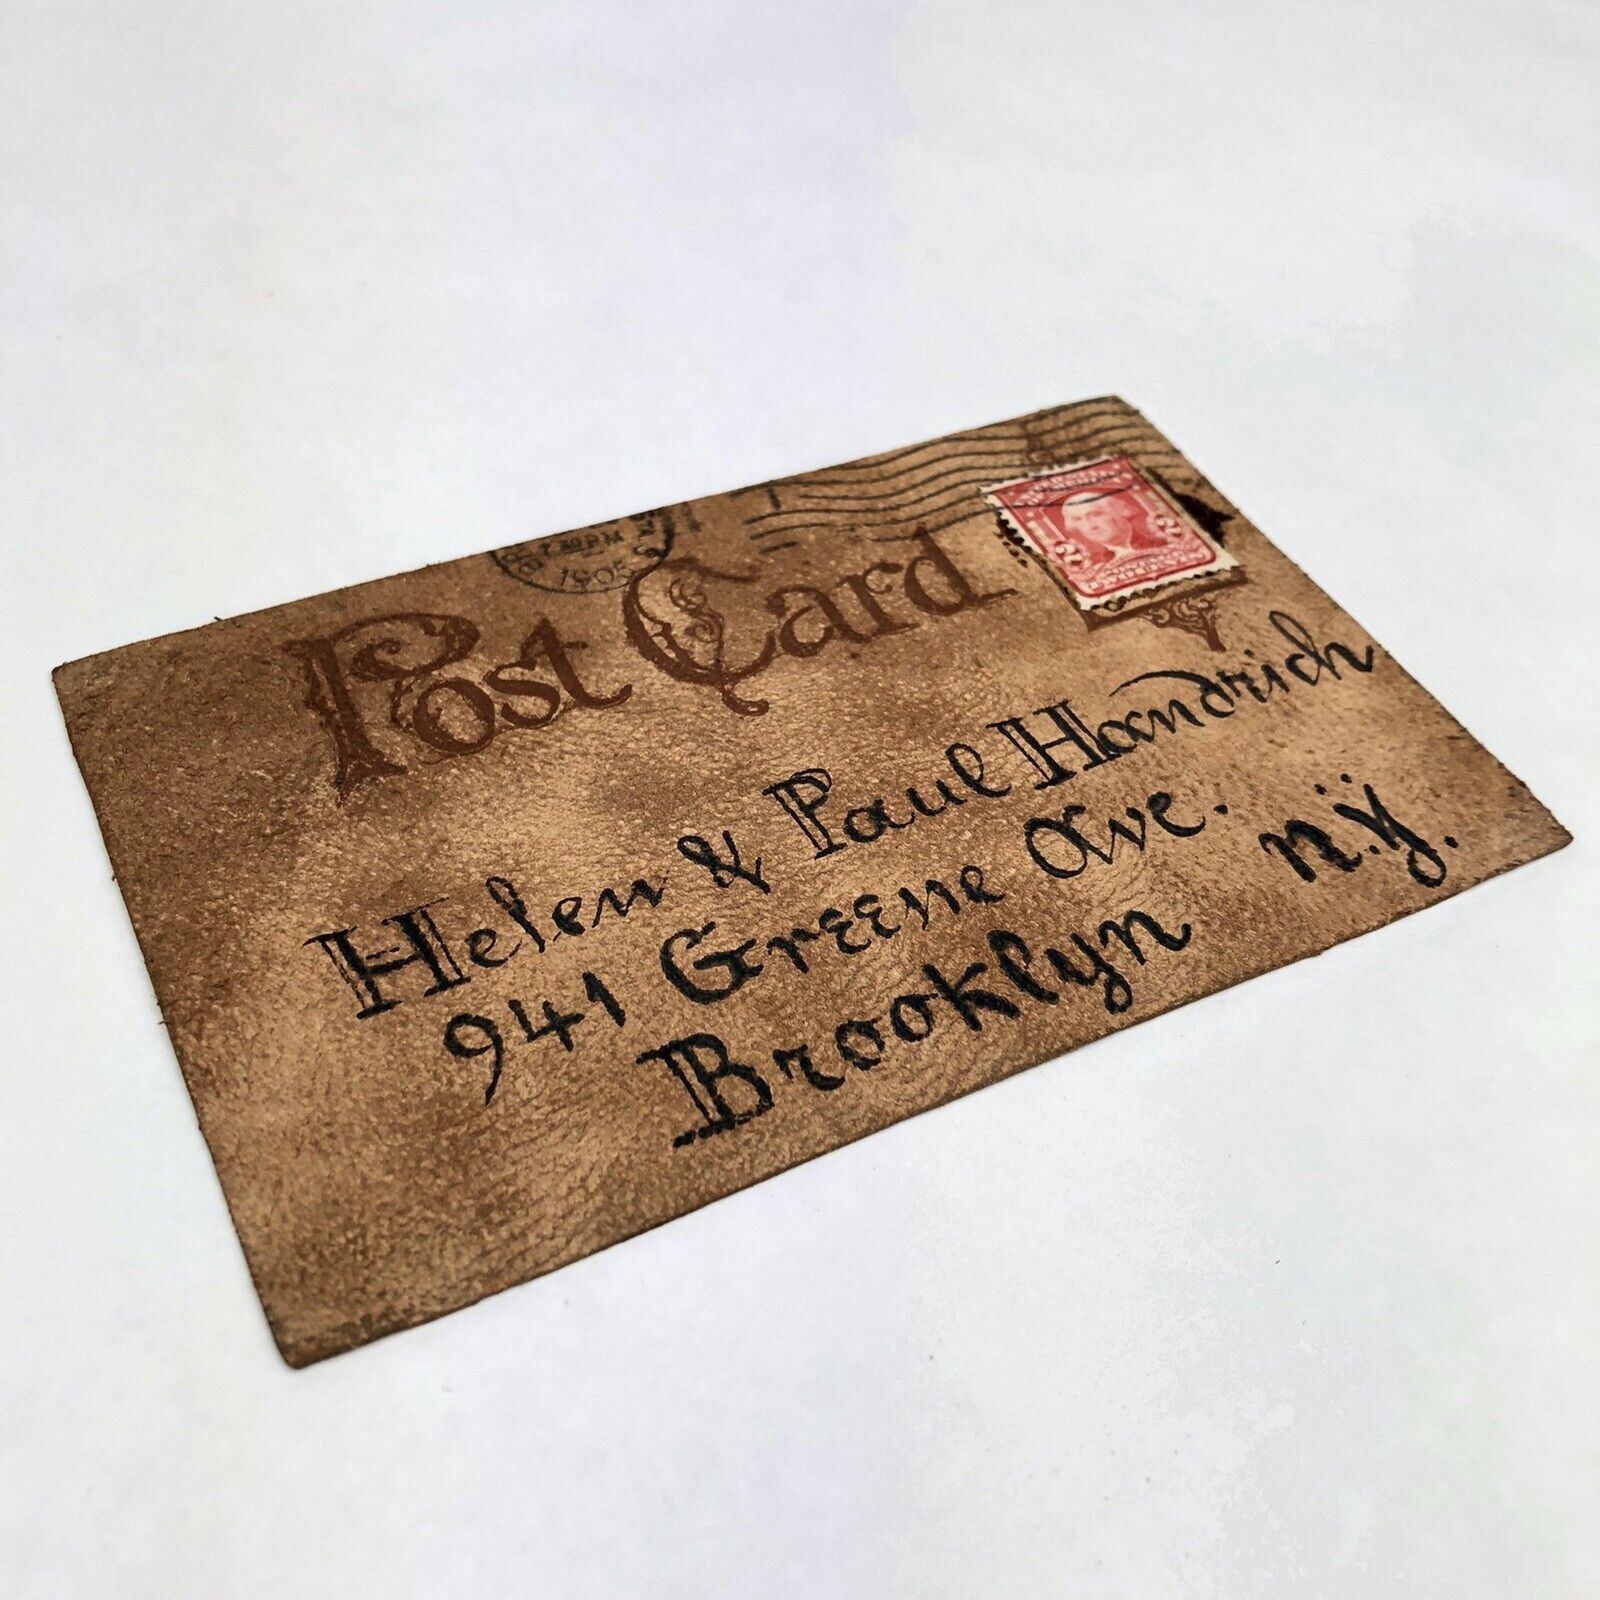 1905
Post Card
2 2
Helen & Paul Handrich
941 Greene Ave.
Brooklyn N.Y.